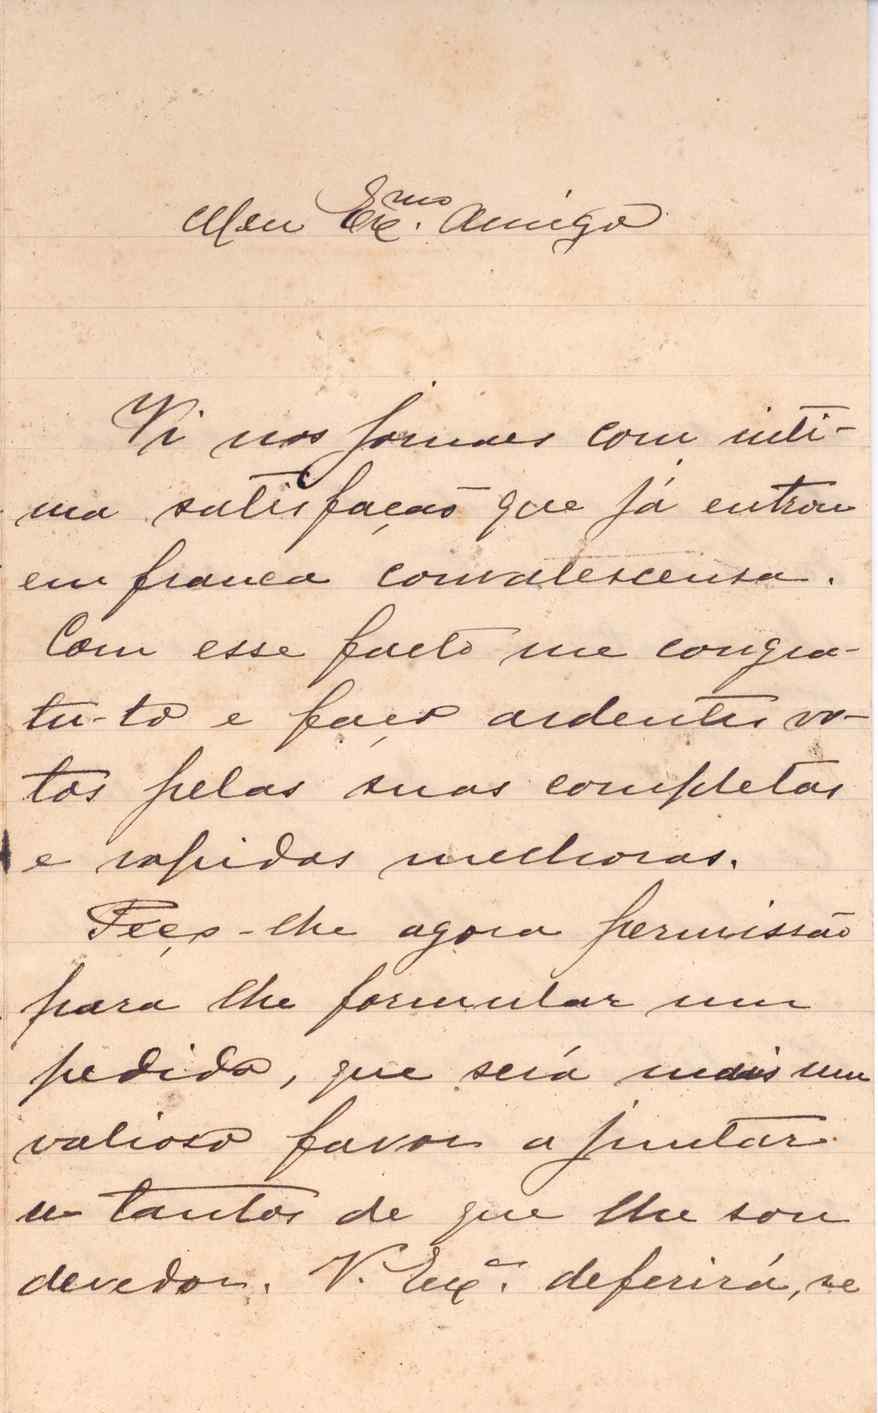 Meu Exmo. Amigo
Vi nos jornaes com inti-
ma satisfação que já entrou
em franca convalescensa.
Com esse facto me congra-
tu-lo e faço ardentes vo-
tos pelas suas completas
e rapidas melhoras.
Peço-lhe agora permissão
para lhe formular um
pedido, que será mais um
valioso favor a juntar
a tantos de que lhe sou
devedor. V. Exa. deferirá, se